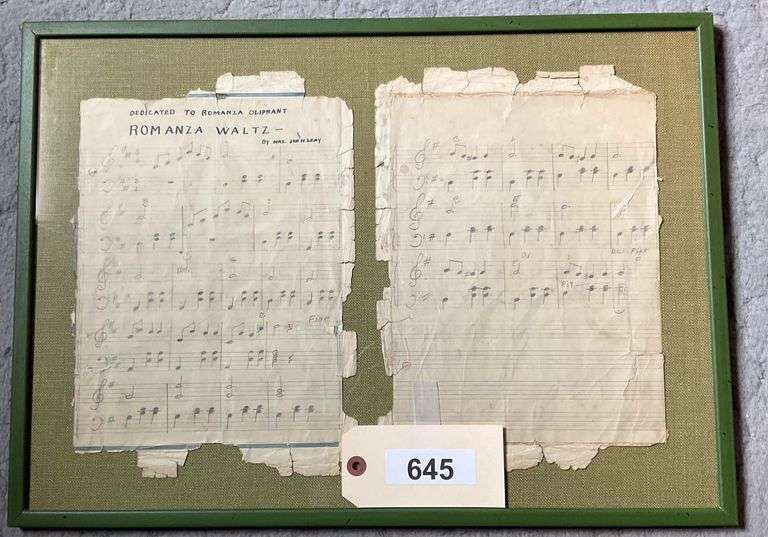 DEDICATED TO ROMANZA OLIPHANT
ROMANZA WALTZ —
BY MRS. JOHN SEAY
Fine
D.C. Fine
645